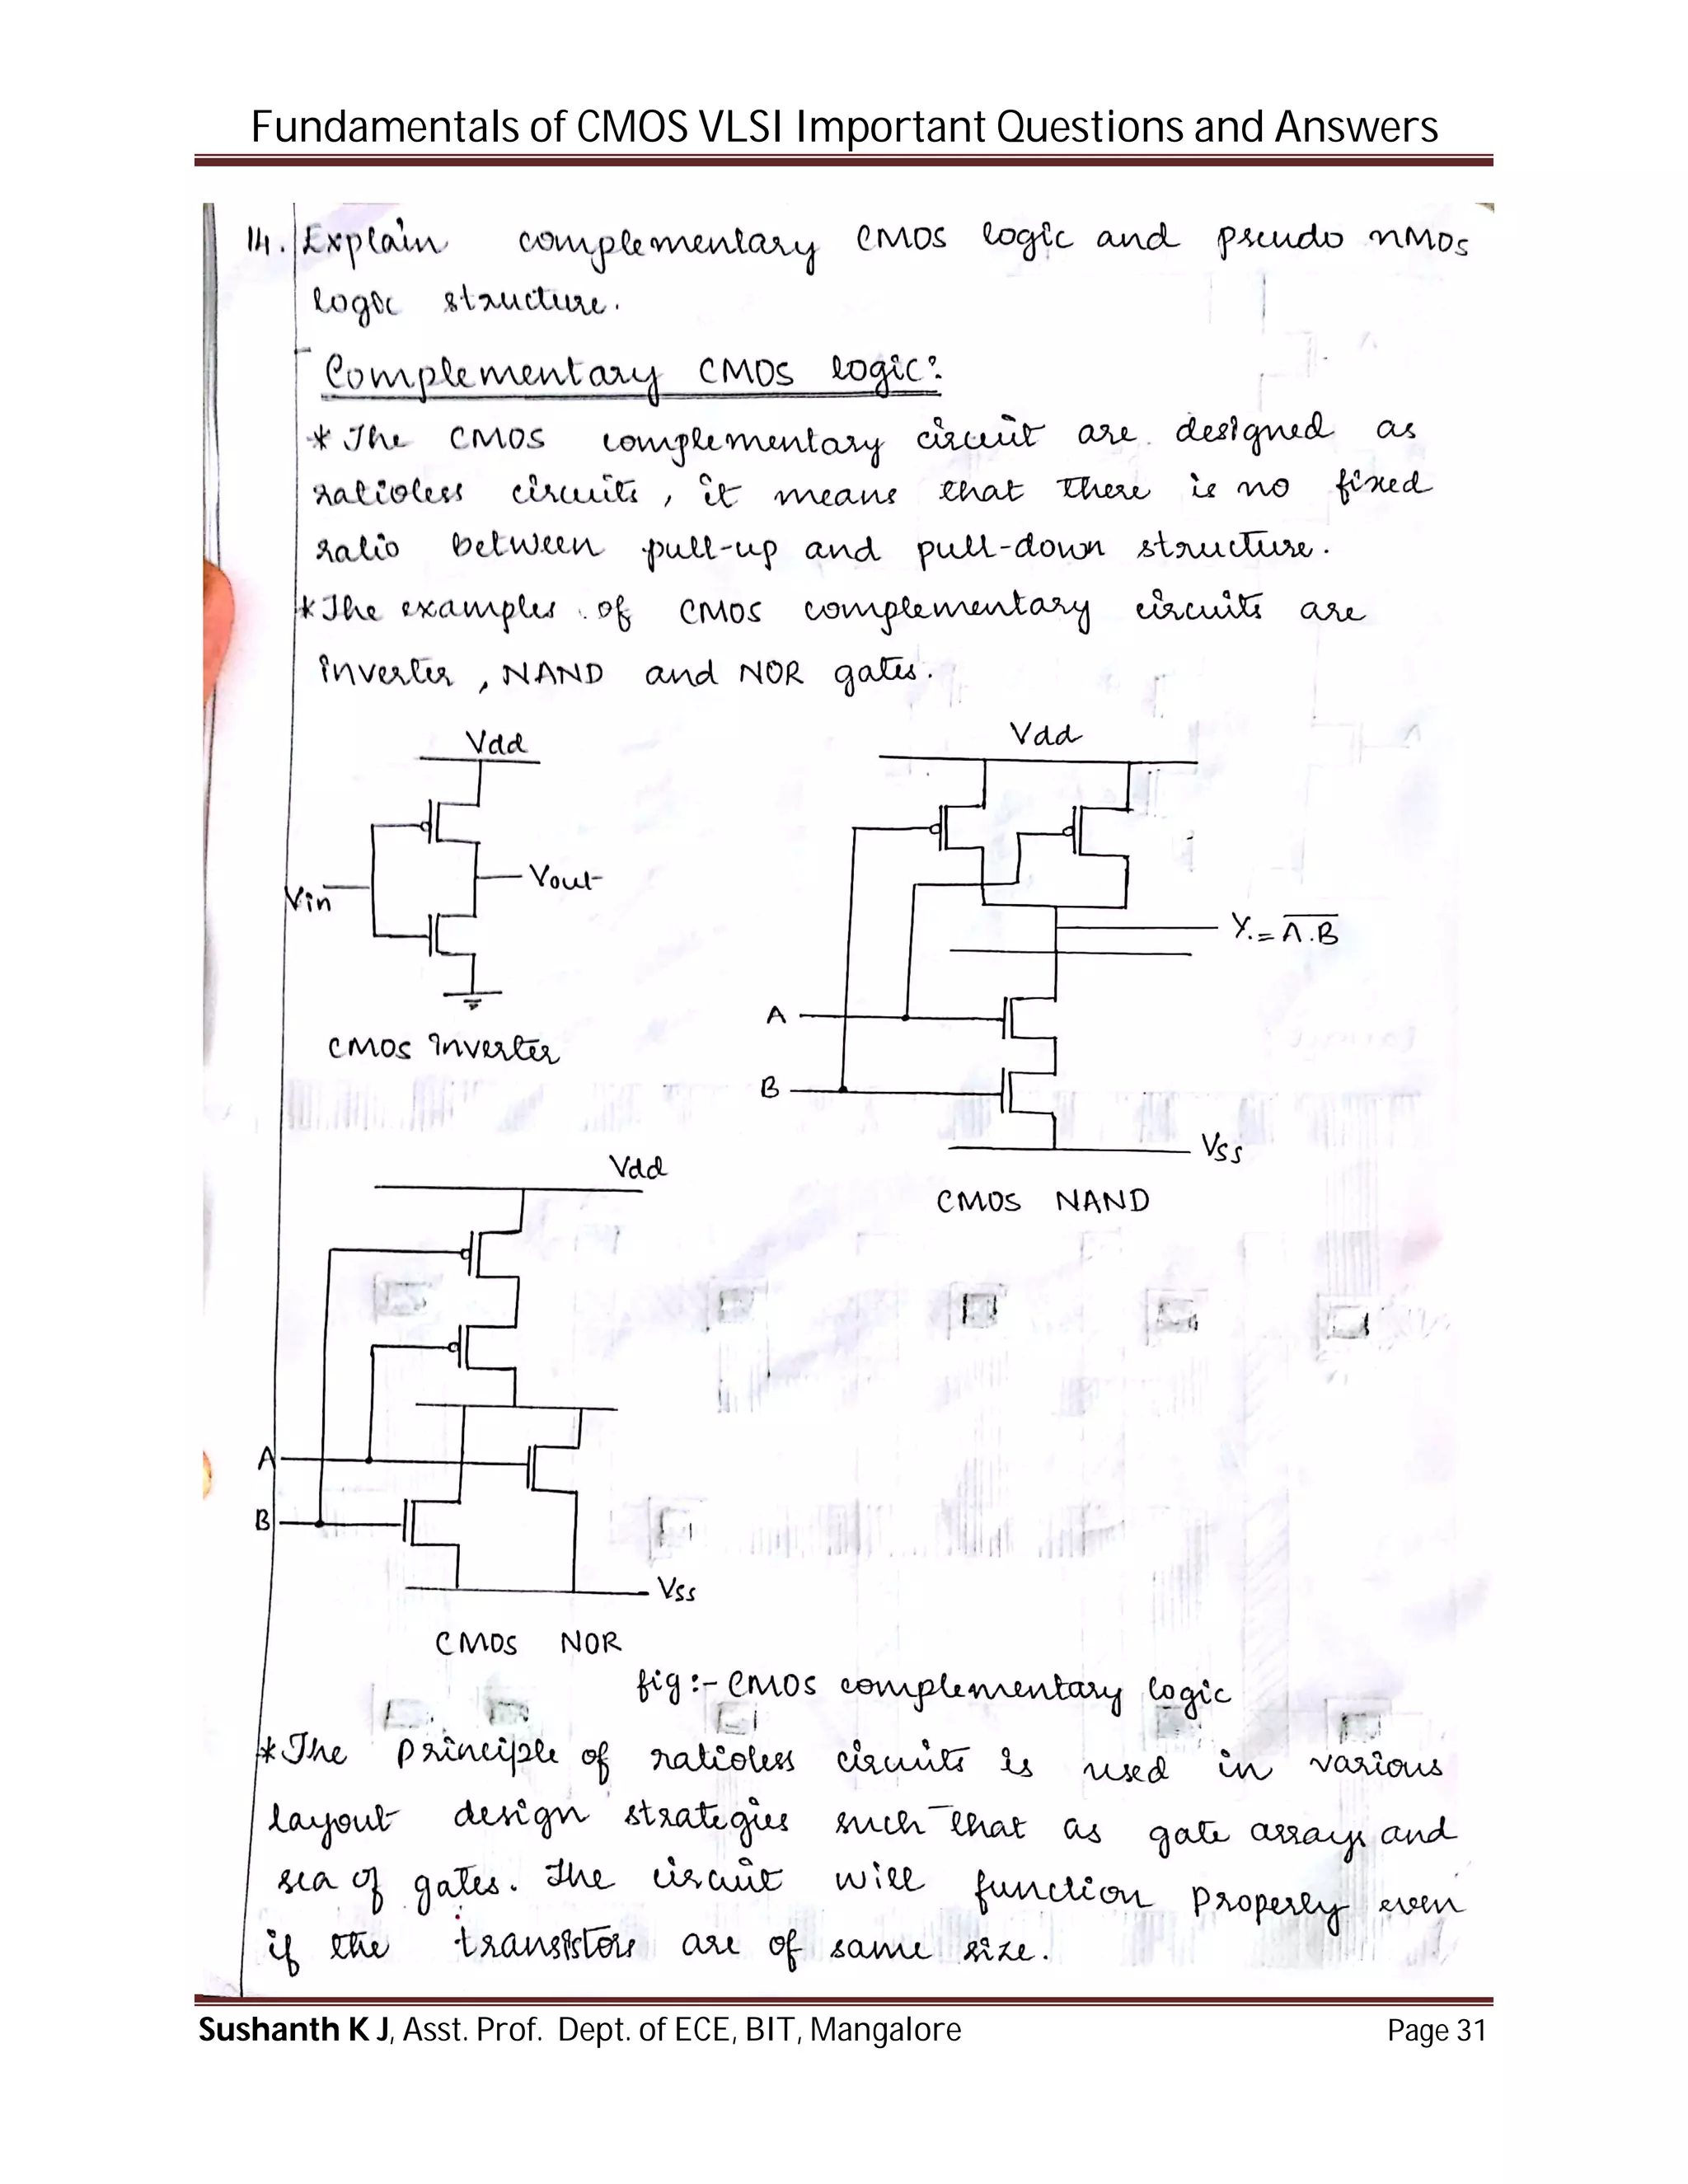 Fundamentals of CMOS VLSI Important Questions and Answers
14. Explain complementary CMOS logic and pseudo nMOS
logic structure.
Complementary CMOS logic:
* The CMOS complementary circuit are designed as
ratioless circuits, it means that there is no fixed
ratio between pull-up and pull-down structure.
* The examples of CMOS complementary circuits are
inverter, NAND and NOR gates.
Vdd
Vdd
Vout
Vin
Y = A.B
A
CMOS Inverter
B
Vss
Vdd
CMOS NAND
A
B
Vss
CMOS NOR
fig:- CMOS complementary logic
* The principle of ratioless circuits is used in various
layout design strategies such that as gate arrays and
sea of gates. The circuit will function properly even
if the transistors are of same size.
Sushanth K J, Asst. Prof. Dept. of ECE, BIT, Mangalore
Page 31